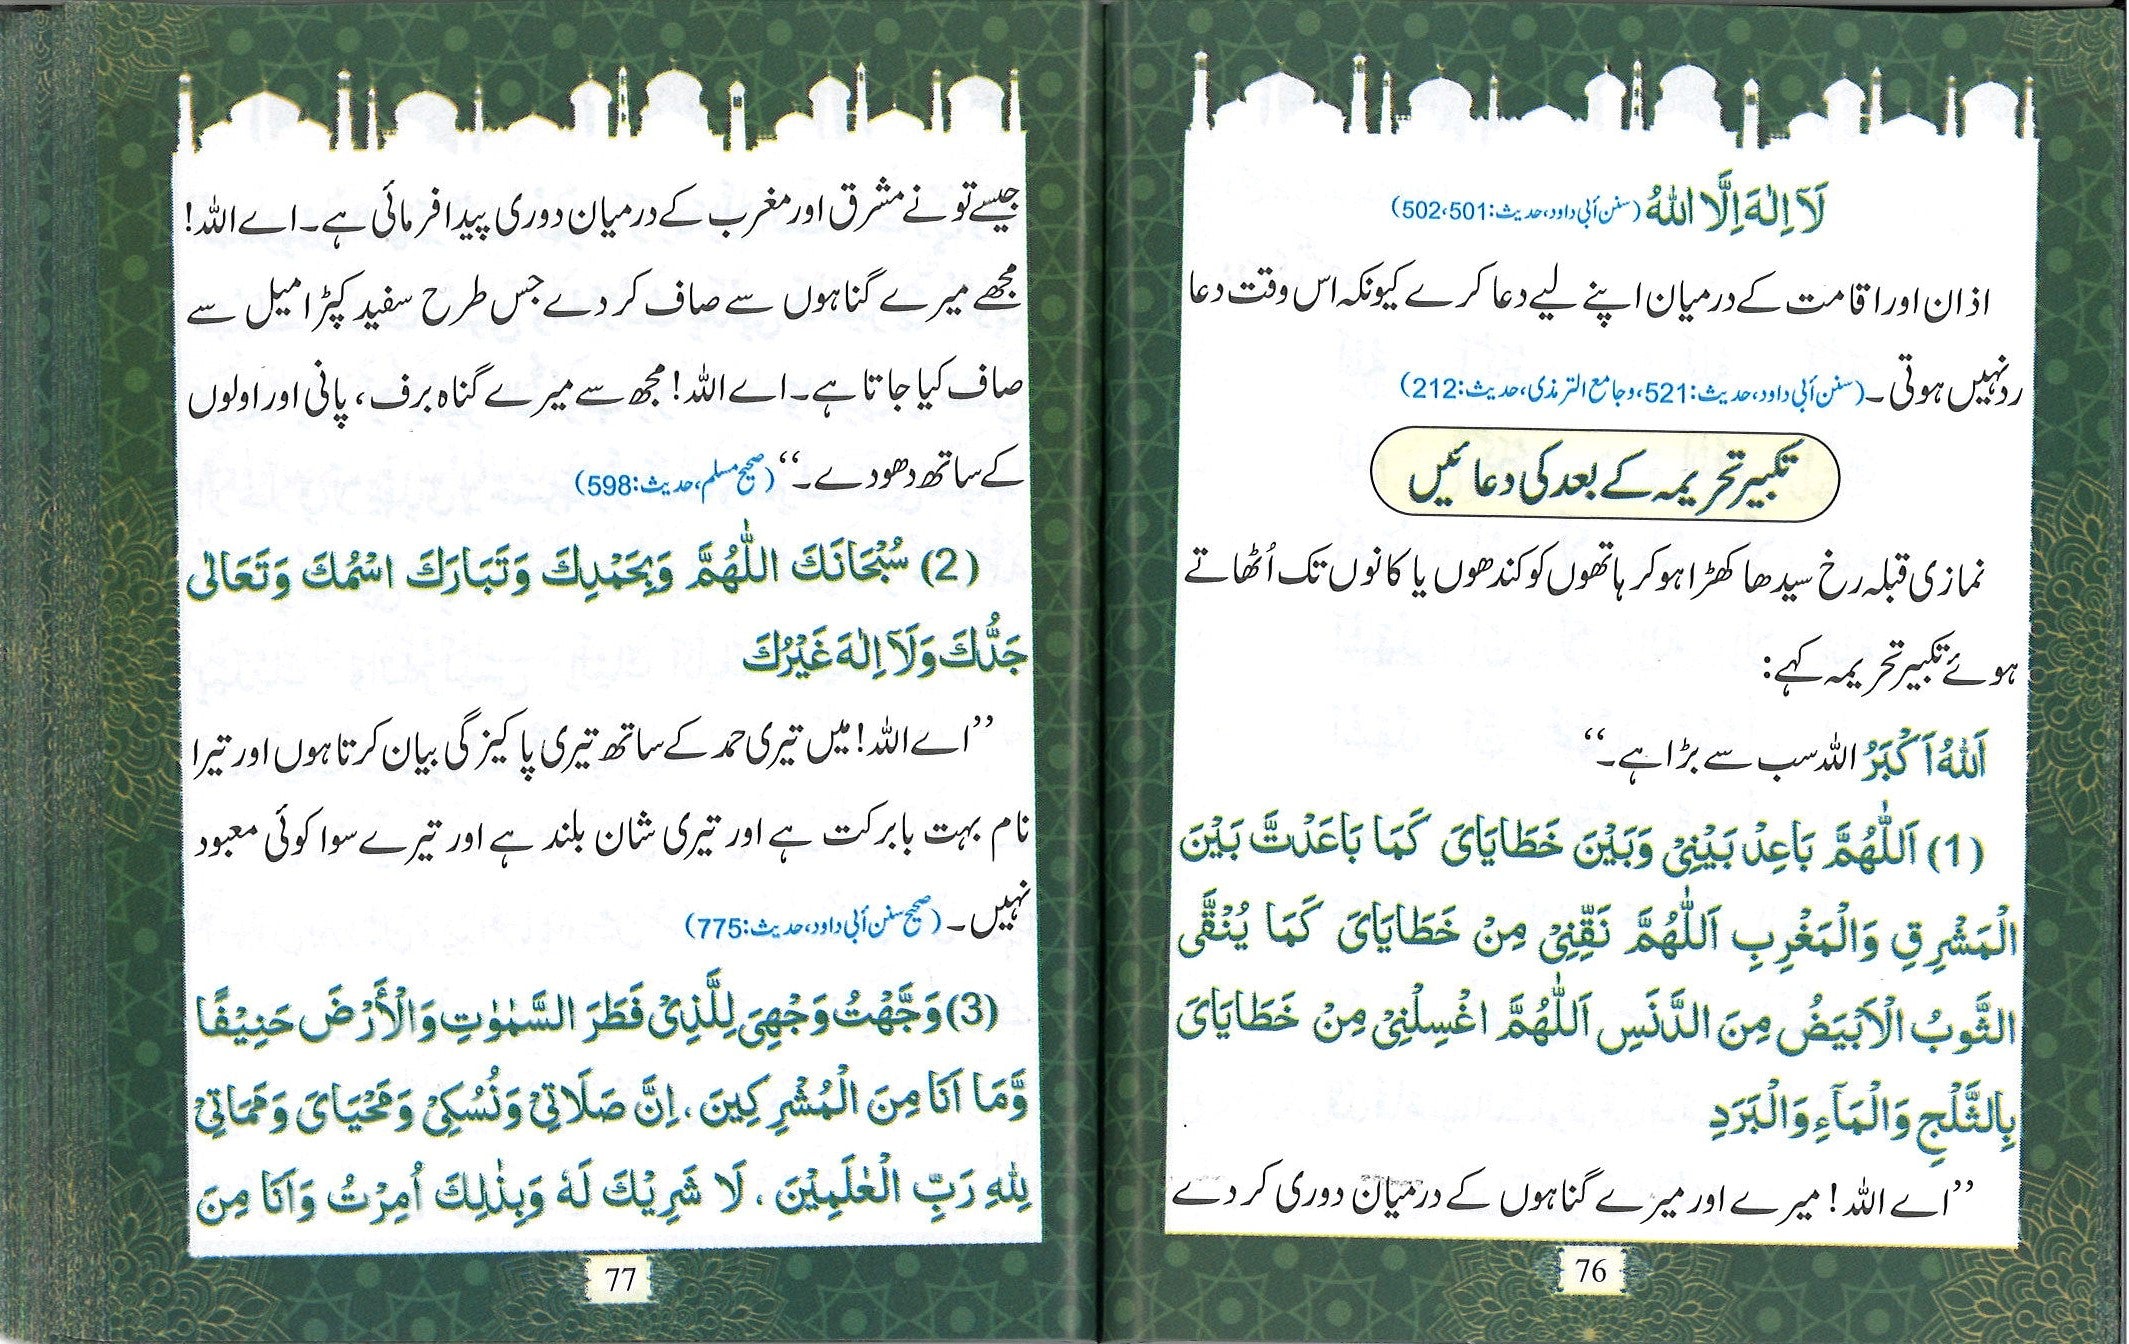 لَآ اِلٰهَ اِلَّا اللّٰهُ (سنن أبی داود، حدیث: 502،501)
اذان اور اقامت کے درمیان اپنے لیے دعا کرے کیونکہ اس وقت دعا
رد نہیں ہوتی۔ (سنن أبی داود، حدیث: 521، وجامع الترمذی، حدیث: 212)
تکبیر تحریمہ کے بعد کی دعائیں
نمازی قبلہ رخ سیدھا کھڑا ہو کر ہاتھوں کو کندھوں یا کانوں تک اُٹھاتے
ہوئے تکبیر تحریمہ کہے:
اَللّٰهُ اَكْبَرُ اللہ سب سے بڑا ہے۔‘‘
(1) اَللّٰهُمَّ بَاعِدْ بَيْنِيْ وَبَيْنَ خَطَايَايَ كَمَا بَاعَدْتَّ بَيْنَ
الْمَشْرِقِ وَالْمَغْرِبِ اَللّٰهُمَّ نَقِّنِيْ مِنْ خَطَايَايَ كَمَا يُنَقَّى
الثَّوبُ الْاَبْيَضُ مِنَ الدَّنَسِ اَللّٰهُمَّ اغْسِلْنِيْ مِنْ خَطَايَايَ
بِالثَّلْجِ وَالْمَآءِ وَالْبَرَدِ
’’اے اللہ! میرے اور میرے گناہوں کے درمیان دوری کر دے
76
جیسے تو نے مشرق اور مغرب کے درمیان دوری پیدا فرمائی ہے۔ اے اللہ!
مجھے میرے گناہوں سے صاف کر دے جس طرح سفید کپڑا میل سے
صاف کیا جاتا ہے۔ اے اللہ! مجھ سے میرے گناہ برف، پانی اور اولوں
کے ساتھ دھو دے۔‘‘ (صحیح مسلم، حدیث: 598)
(2) سُبْحَانَكَ اللّٰهُمَّ وَبِحَمْدِكَ وَتَبَارَكَ اسْمُكَ وَتَعَالٰى
جَدُّكَ وَلَآ اِلٰهَ غَيْرُكَ
’’اے اللہ! میں تیری حمد کے ساتھ تیری پاکیزگی بیان کرتا ہوں اور تیرا
نام بہت بابرکت ہے اور تیری شان بلند ہے اور تیرے سوا کوئی معبود
نہیں۔ (صحیح سنن أبی داود، حدیث: 775)
(3) وَجَّهْتُ وَجْهِيَ لِلَّذِيْ فَطَرَ السَّمٰوٰتِ وَالْأَرْضَ حَنِيْفًا
وَّمَا اَنَا مِنَ الْمُشْرِكِينَ، اِنَّ صَلَاتِيْ وَنُسُكِيْ وَمَحْيَايَ وَمَمَاتِيْ
لِلّٰهِ رَبِّ الْعٰلَمِيْنَ، لَا شَرِيْكَ لَهٗ وَبِذٰلِكَ اُمِرْتُ وَاَنَا مِنَ
77